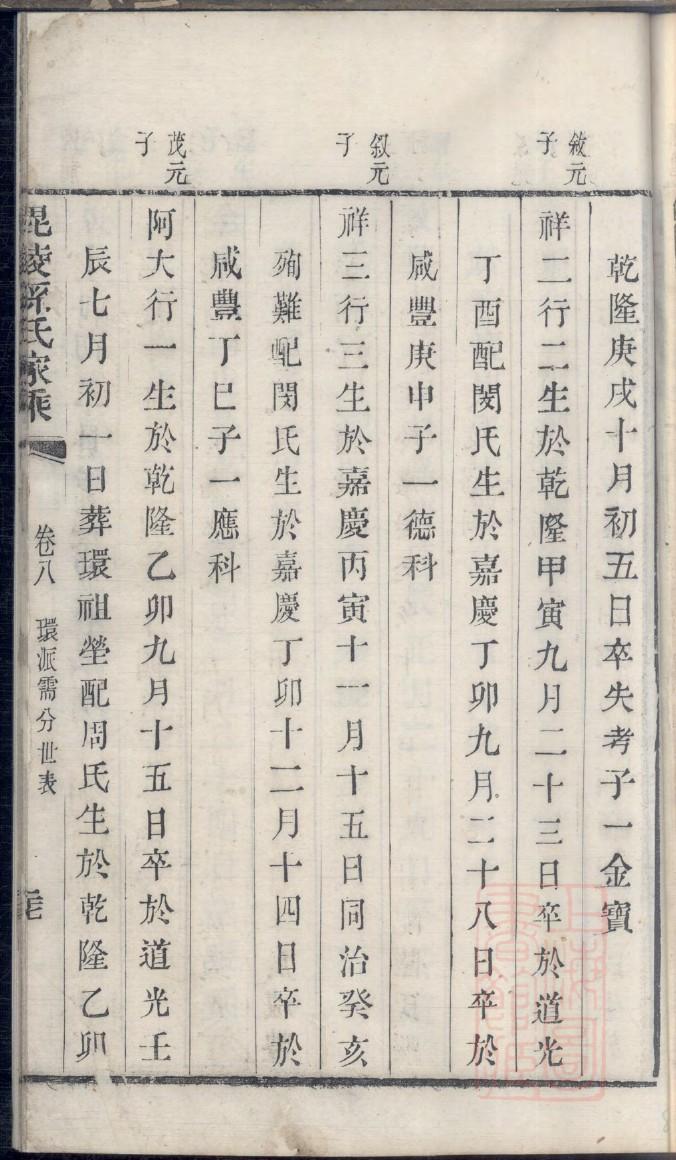 乾隆庚戌十月初五日卒失考子一金寶
敘元子
祥二行二生於乾隆甲寅九月二十三日卒於道光
丁酉配閔氏生於嘉慶丁卯九月二十八日卒於
咸豐庚申子一德科
叙元子
祥三行三生於嘉慶丙寅十一月十五日同治癸亥
殉難配閔氏生於嘉慶丁卯十二月十四日卒於
咸豐丁巳子一應科
茂元子
阿大行一生於乾隆乙卯九月十五日卒於道光壬
辰七月初一日葬環祖塋配周氏生於乾隆乙卯
毘陵孫氏家乘
卷八 環派需分世表